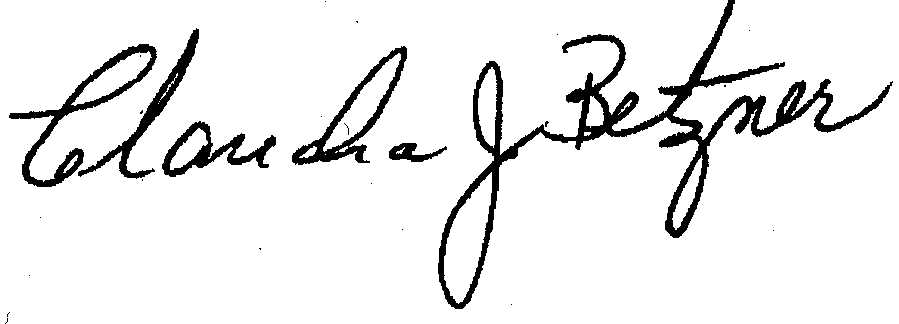 Claudia J Betzner